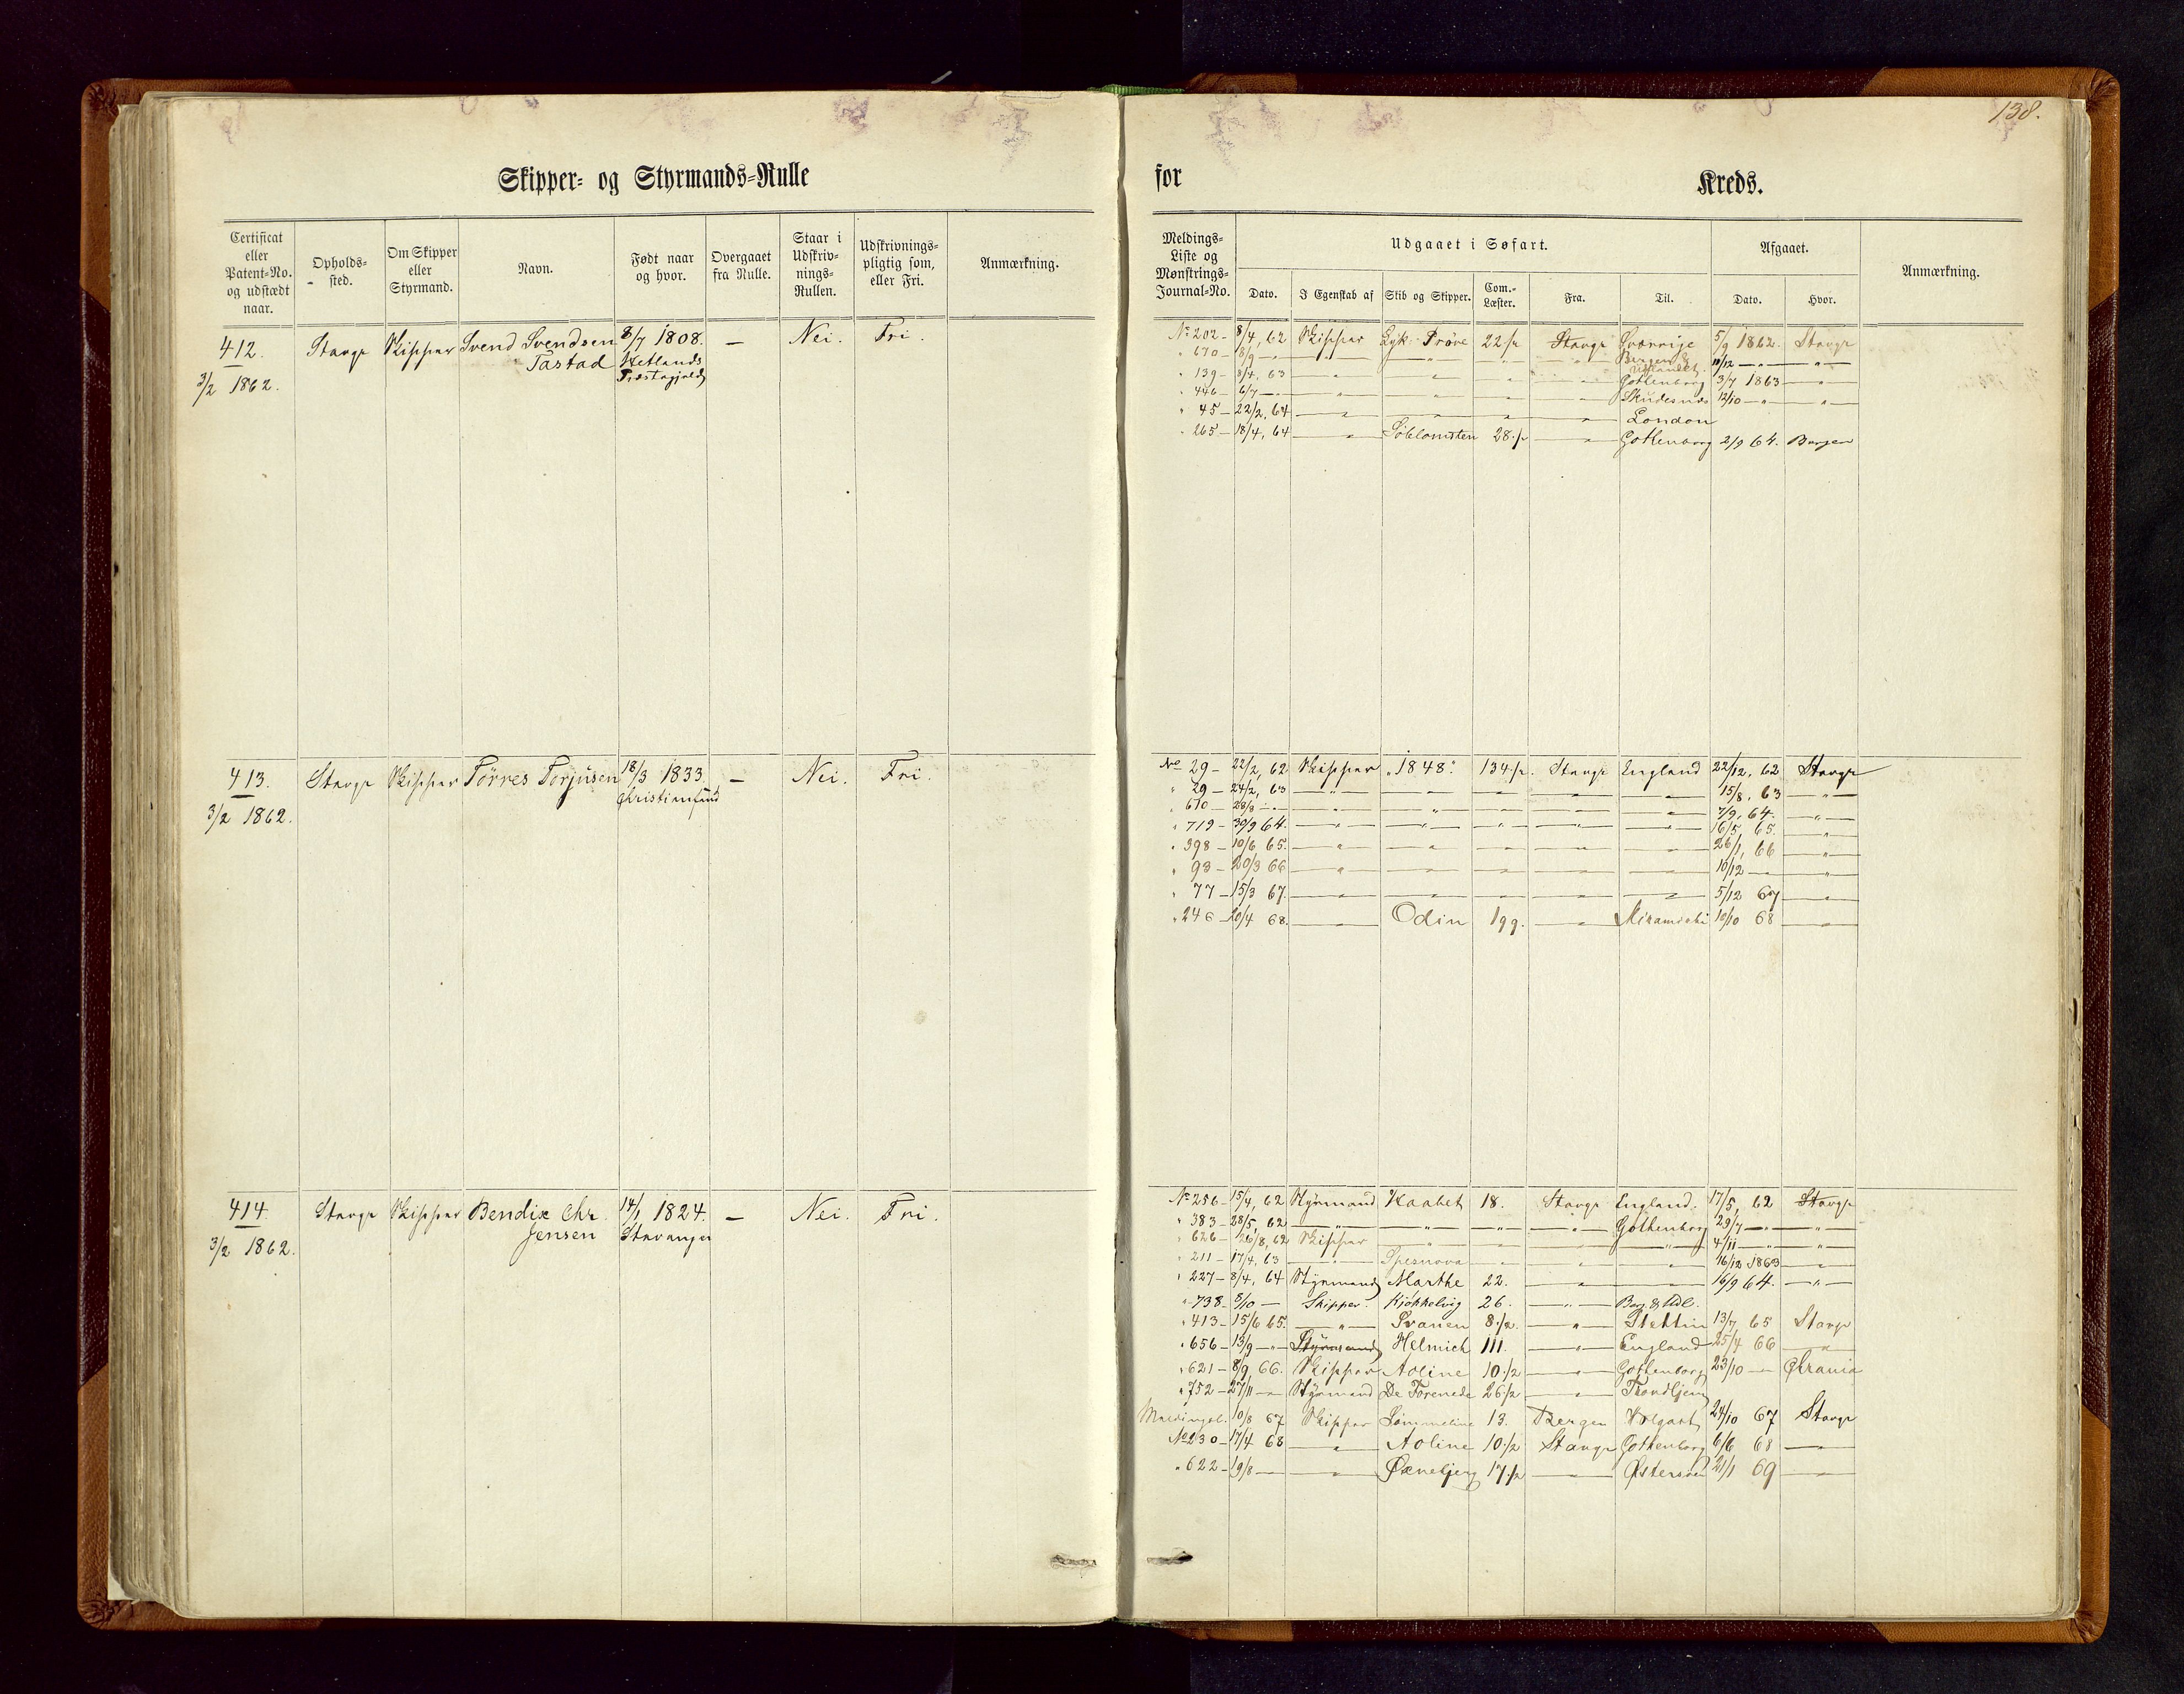 138.
Skipper- og Styrmands-Rulle for Kreds.
Certificat eller Patent-No. og udstædt naar.
Opholds-sted.
Om Skipper eller Styrmand.
Navn.
Født naar og hvor.
Overgaaet fra Rulle.
Staar i Udskriv-nings-Rullen.
Udskrivnings-pligtig som, eller Fri.
Anmærkning.
Meldings-Liste og Mønstrings-Journal-No.
Udgaaet i Søfart.
Dato.
I Egenskab af
Skib og Skipper.
Com.-Læster.
Fra.
Til.
Afgaaet.
Dato.
Hvor.
Anmærkning.
412. Stavgr Skipper Svend Svendsen 8/7 1808. — Nei. Fri.
Tastad Hetlands
3/2 1862. Præstegjeld
No 202 - 8/4, 62 Skipper Lyk. Prøve 22 1/2 Stavgr Sverrige 5/9 1862 Stavgr
" 670 - 18/9 - " " " " " Bergen & 11/12 — " — " —
" 139 - 8/4, 63 " " " " Gothenborg 3/7 1863 "
" 446 - 6/7 - " " " " " Skudesnæs 12/10 - " - "
" 45 - 22/2, 64 " " " " London
" 265 - 18/4, 64 " Søblomsten 28 1/2 " Gothenborg 2/9 64. Bergen
413. Stavgr Skipper Tørres Torjusen 18/3 1833. — Nei. Fri.
Christiansund
3/2 1862.
No 29 - 22/2, 62 Skipper "1848". 134 1/2. Stavgr England 22/12, 62 Stavgr
" 29 - 24/2, 63 " " " " " 15/8, 63 "
" 670 - 28/8 - " " " " " " 7/9, 64. "
" 719 - 30/9 64. " " " " " 16/5, 65. "
" 398 - 10/6 65. " " " " " 26/1, 66 "
" 93 - 20/3 66 " " " " " 10/12 — "
" 77 - 15/3 67. " " " " " 5/12 67 "
" 246 - 20/4 68. " Odin 199. " Miramichi 10/10 68 "
414 Stavgr Skipper Bendix Chr. 14/1 1824. — Nei. Fri.
Jensen Stavanger
3/2 1862.
No 256 - 15/4, 62 Styrmand Haabet 18. Stavgr England. 17/5, 62 Stavgr
" 383 - 28/5, 62 " " " " Gothenborg 29/7 — " — "
" 626 - 26/8, 62 Skipper " " " " 4/11 — " — "
" 211 - 17/4, 63 " Spesnova " " " 16/12 1863 "
" 227 - 8/4, 64 Styrmand Marthe 22. " " 16/9 64. "
" 738 - 8/10 — Skipper. Kjøkkelvig 26. " Berg. & Udl.
" 413 - 15/6 65. " Svanen 8 1/2. " Stettin 13/7 65 Stavgr
" 656 - 13/9 - " - Styrmand Helmich 111. " England 25/4 66 "
" 621 - 8/9 66. Skipper Aoline 10 1/2 " Gothenborg 23/10 — Chrania
" 752 - 27/11 - " Styrmand De Forenede 26 1/2 " Trondhjem
Meldingsl. 10/8 67 Skipper 13. Bergen Wolgast 24/10 67 Stavgr
No 230 - 17/4 68 " Aoline 10 1/2 Stavgr Gothenborg 6/6 68 "
" 622 - 19/8 — " 17 1/2 " Østersøen 21/1 69 "